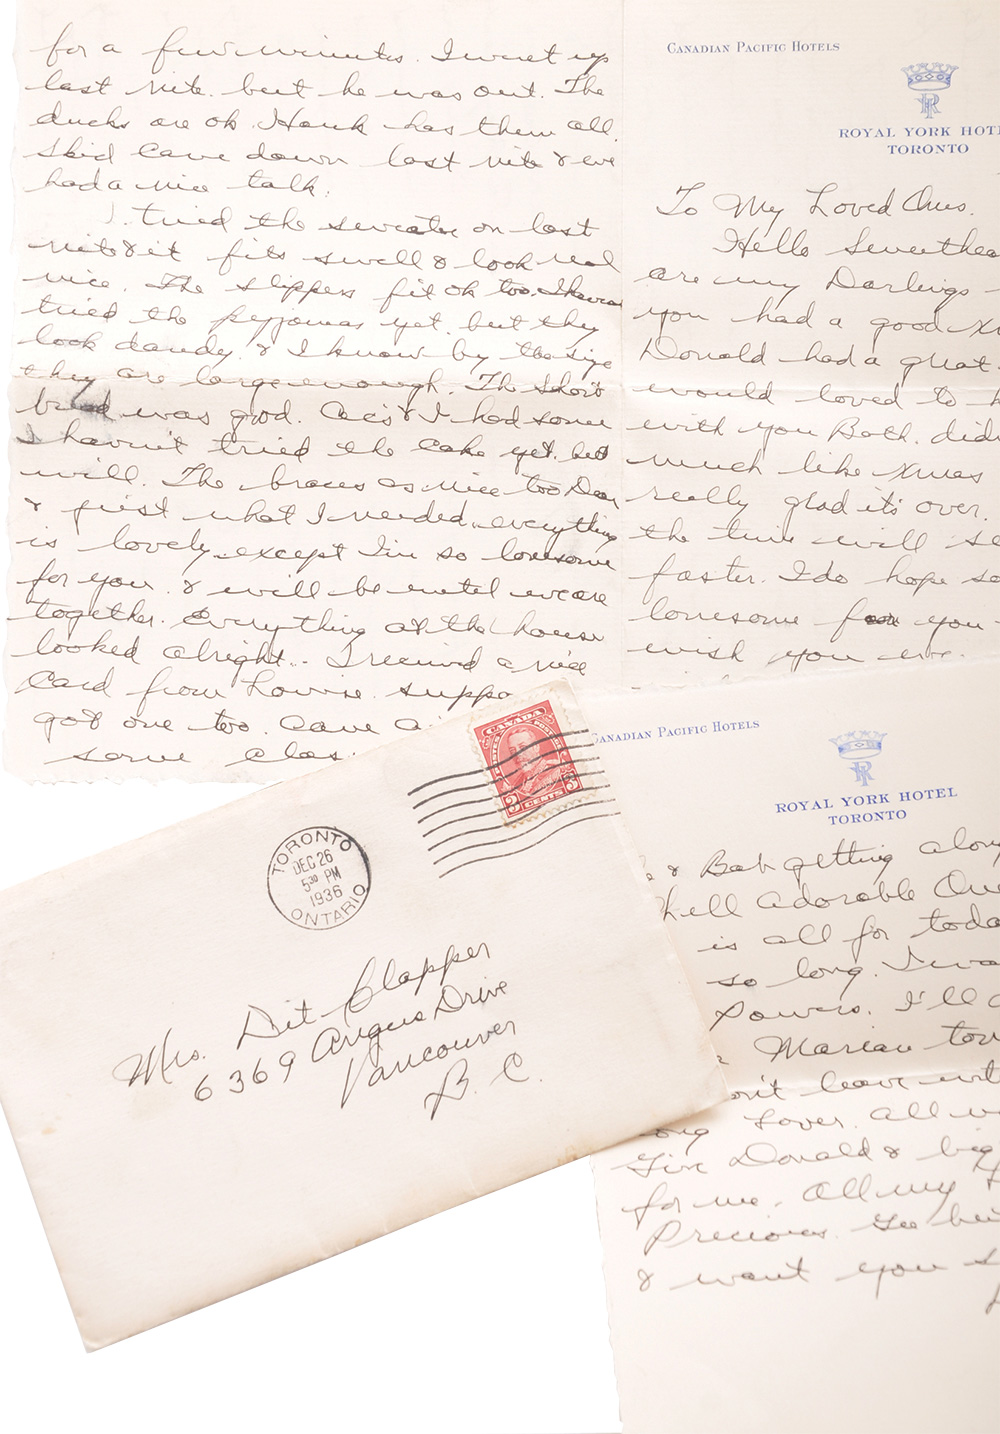 for a few minutes. I went up
last nite. but he was out. The
ducks are ok. Hank has them all.
Skid came down last nite & we
had a nice talk.
I tried the sweater on last
nite & it fits swell & look real
nice. The slippers fit ok too. I haven
tried the pyjamas yet. but they
look dandy. & I know by the size
they are large enough. The Short
bread was good. & I had some
I havn't tried the cake yet. but
will. The braces as nice too Dear
& just what I needed. everything
is lovely except I'm so lonesome
for you. & will be until we are
together. Everything at the house
looked alright.. I received a nice
Card from Louise. suppo
got one too. Came
some
CANADIAN PACIFIC HOTELS
ROYAL YORK HOT
TORONTO
To My Loved Ones.
Hello Sweethea
are my Darlings
you had a good X
Donald had a great
would loved to h
with you Both. didn
much like Xmas
really glad it's over.
the time will se
faster. I do hope so
lonesome for you
wish you were.
CANADA
POSTES POSTAGE
3 CENTS 3
TORONTO
DEC 26
5 30 PM
1936
ONTARIO
Mrs. Dit Clapper
6369 Angus Drive
Vancouver
B. C.
CANADIAN PACIFIC HOTELS
ROYAL YORK HOTEL
TORONTO
& Bab getting along
Well Adorable One
is all for toda
so long. I wa
Powers. I'll
Marian
on't leave
ong Lover. All
Give Donald & big
for me. All my
Precious. Gee
& want you s